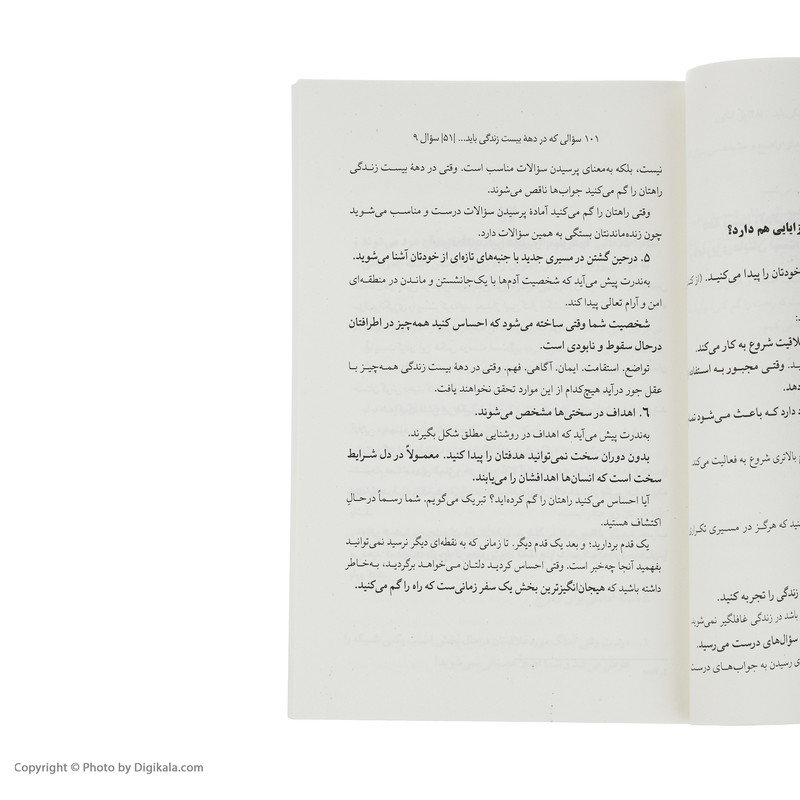 زایایی هم دارد؟
خودتان را پیدا می‌کنید. (از
لاقیت شروع به کار می‌کند.
وقتی مجبور به
دهد.
دارد که باعث می‌شود
بالاتری شروع به فعالیت می‌کند
که هرگز در مسیری تکراری
زندگی را تجربه کنید.
باشد در زندگی غافلگیر نمی‌شوید
سؤال‌های درست می‌رسید.
رسیدن به جواب‌های درست
۱۰۱ سؤالی که در دههٔ بیست زندگی باید... |۵۱| سؤال ۹
نیست، بلکه به‌معنای پرسیدن سؤالات مناسب است. وقتی در دههٔ بیست زندگی
راهتان را گم می‌کنید جواب‌ها ناقص می‌شوند.
وقتی راهتان را گم می‌کنید آمادهٔ پرسیدن سؤالات درست و مناسب می‌شوید
چون زنده‌ماندنتان بستگی به همین سؤالات دارد.
۵. درحین گشتن در مسیری جدید با جنبه‌های تازه‌ای از خودتان آشنا می‌شوید.
به‌ندرت پیش می‌آید که شخصیت آدم‌ها با یک‌جانشستن و ماندن در منطقه‌ای
امن و آرام تعالی پیدا کند.
شخصیت شما وقتی ساخته می‌شود که احساس کنید همه‌چیز در اطرافتان
درحال سقوط و نابودی است.
تواضع. استقامت. ایمان. آگاهی. فهم. وقتی در دههٔ بیست زندگی همه‌چیز با
عقل جور درآید هیچ‌کدام از این موارد تحقق نخواهند یافت.
۶. اهداف در سختی‌ها مشخص می‌شوند.
به‌ندرت پیش می‌آید که اهداف در روشنایی مطلق شکل بگیرند.
بدون دوران سخت نمی‌توانید هدفتان را پیدا کنید. معمولاً در دل شرایط
سخت است که انسان‌ها اهدافشان را می‌یابند.
آیا احساس می‌کنید راهتان را گم کرده‌اید؟ تبریک می‌گویم. شما رسماً درحال
اکتشاف هستید.
یک قدم بردارید؛ و بعد یک قدم دیگر. تا زمانی که به نقطه‌ای دیگر نرسید نمی‌توانید
بفهمید آنجا چه‌خبر است. وقتی احساس کردید دلتان می‌خواهد برگردید، به‌خاطر
داشته باشید که هیجان‌انگیزترین بخش یک سفر زمانی‌ست که راه را گم می‌کنید.
Copyright © Photo by Digikala.com